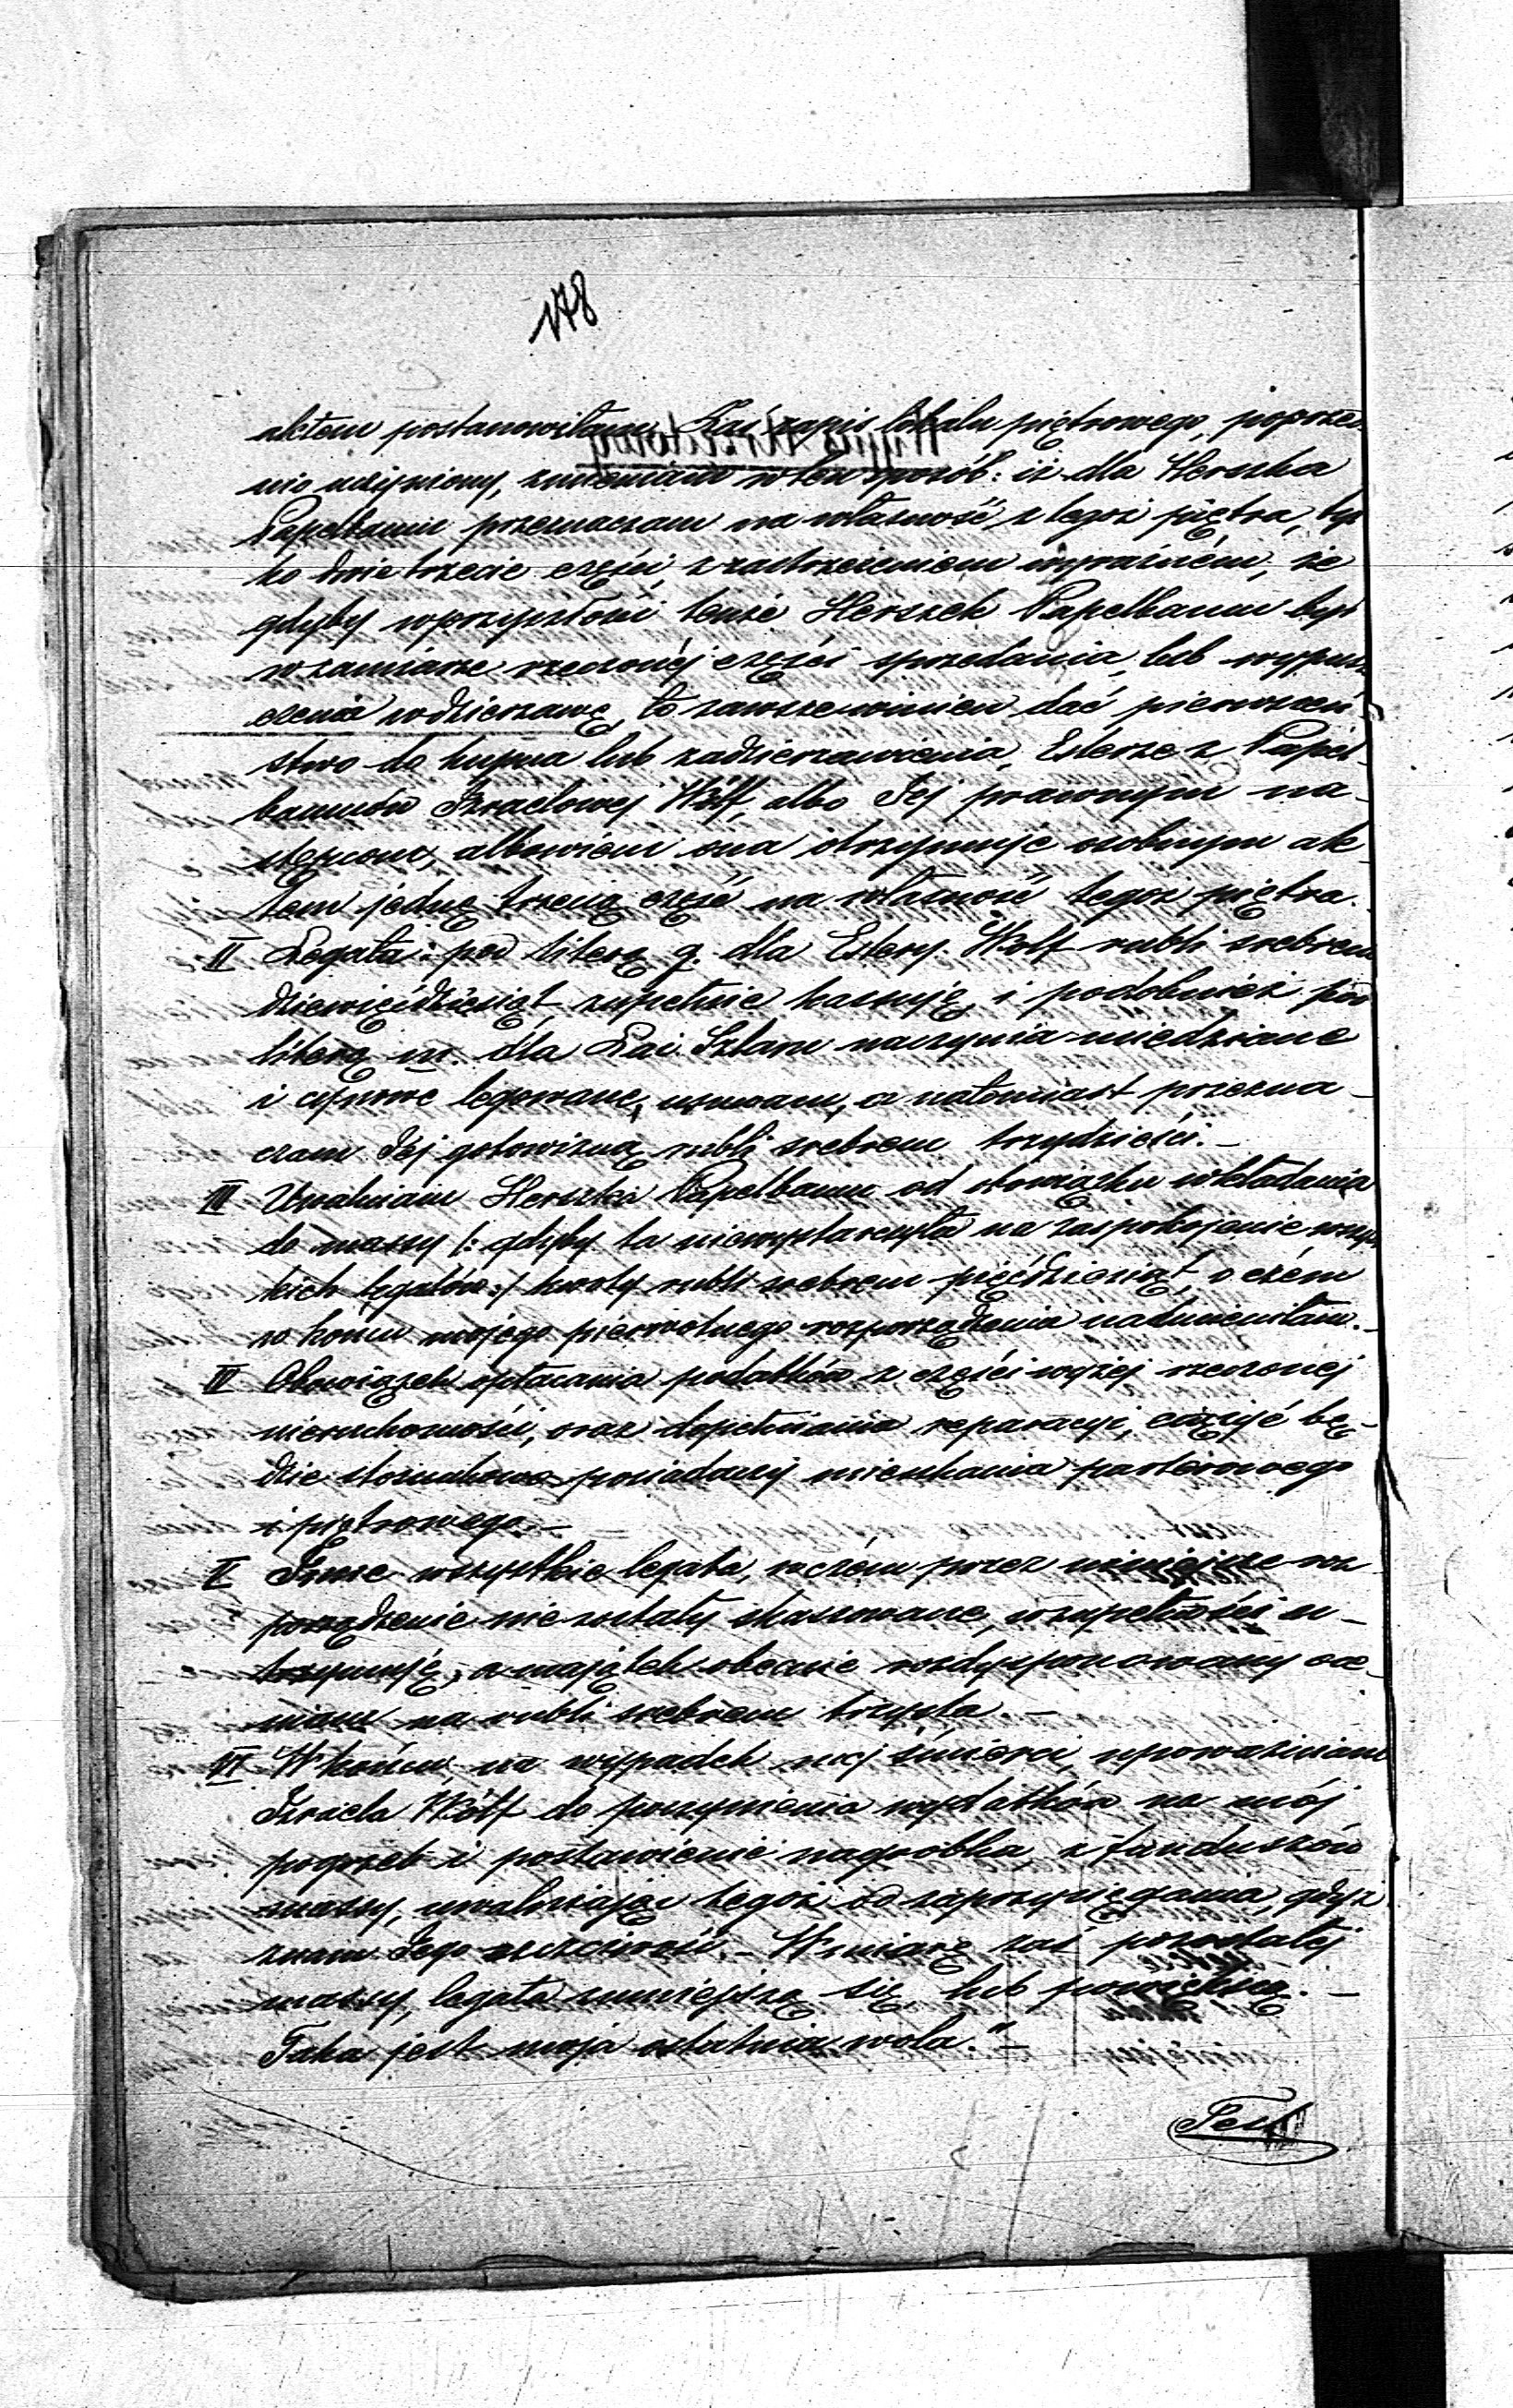 178
aktem postanowiłam. Zaś zapis lokalu piętrowego, poprzed-
nio uczyniony, zmieniam w ten sposób: iż dla Herszka
Papelbaum przeznaczam na własność z tegoż piętra, tyl
ko dwie trzecie części, z zastrzeżeniem wyraźném, że
gdyby w przyszłości tenże Herszek Papelbaum był
w zamiarze rzeczonéj części sprzedania, lub wypusz
czenia w dzierżawę, to zawsze winien dać pierwszeń
stwo do kupna lub zadzierżawienia, Esterze z Papel-
baumów Izraelowej Wolf, albo Jej prawnym na-
stępcom, albowiem ona otrzymuje osobnym ak-
tem jednę trzecią część na własność tegoż piętra.
II Legata: pod literą g. dla Estery Wolf rubli srebrem
dziewięćdziesiąt, zupełnie kassuję, i podobnież pod
literą m. dla Łai Szlam naczynia miedziane
i cynowe legowane, usuwam, a natomiast przezna-
czam Jej gotowizną rubli srebrem trzydzieści.-
III Uwalniam Herszka Papelbaum od obowiązku wkładania
do massy /: gdyby ta niewystarczyła na zaspokojenie wszyst
kich legatów :/ kwoty rubli srebrem pięćdziesiąt, o czém
w końcu mojego pierwotnego rozporządzenia nadmieniłam.-
IV Obowiązek opłacania podatków z części wyżej rzeczonej
nieruchomości, oraz dopełniania reparacyi, ciążyć bę-
dzie stosunkowo posiadaczy mieszkania parterowego
i piętrowego.-
V Inne wszystkie legata, w czém przez niniejsze roz
porządzenie nie zostały skassowane, w zupełności u-
trzymuję, a majątek obecnie rozdysponowany oce-
niam na rubli srebrem trzysta.-
VI W końcu, na wypadek mej śmierci, upoważniam
Izraela Wolf do poczynienia wydatków na mój
pogrzeb i postawienie nagrobka, z funduszów
massy, uwalniając tegoż od zaprzysięgania, gdyż
znam Jego uczciwość.- W miarę zaś pozostałej
massy, legata zmniejszą się lub powiększą.-
Taka jest moja ostatnia wola."-
Test